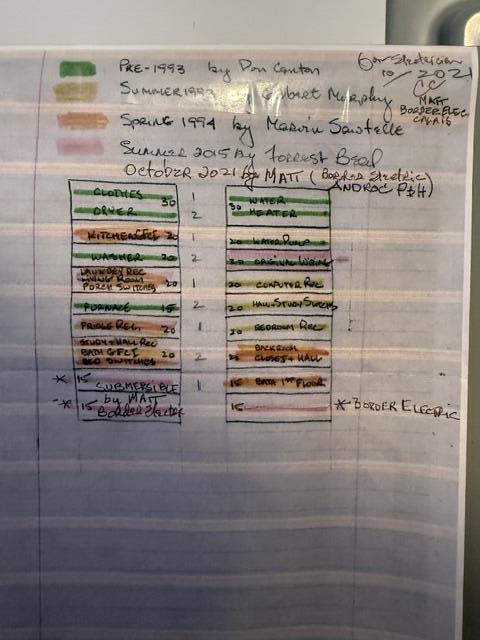 PRE-1993 by Don Canton
SUMMER 1993 by Murphy
SPRING 1994 by Marvin Sawtelle
SUMMER 2015 by FORREST
OCTOBER 2021 by MATT (BORDER ELECTRIC)
10/2021
MATT
BORDER ELEC
CALAIS
CLOTHES
DRYER 30
1
2
30 WATER
HEATER
KITCHEN GFCI 20
1
20 WATER PUMP
WASHER 20
2
20 ORIGINAL WIRING
LAUNDRY REC
LIVING ROOM
PORCH SWITCHES 20
1
20 COMPUTER REC
FURNACE 15
2
20 HALL + STUDY SWITCHES
FRIDGE REC. 20
1
20 BEDROOM REC
STUDY + HALL REC
BATH GFCI 20
SWITCHES
2
BACKROOM
CLOSET + HALL
* 15
SUBMERSIBLE
by MATT
1
15 BATH 1ST FLOOR
* 15 BORDER ELECTRIC
15
* BORDER ELECTRIC